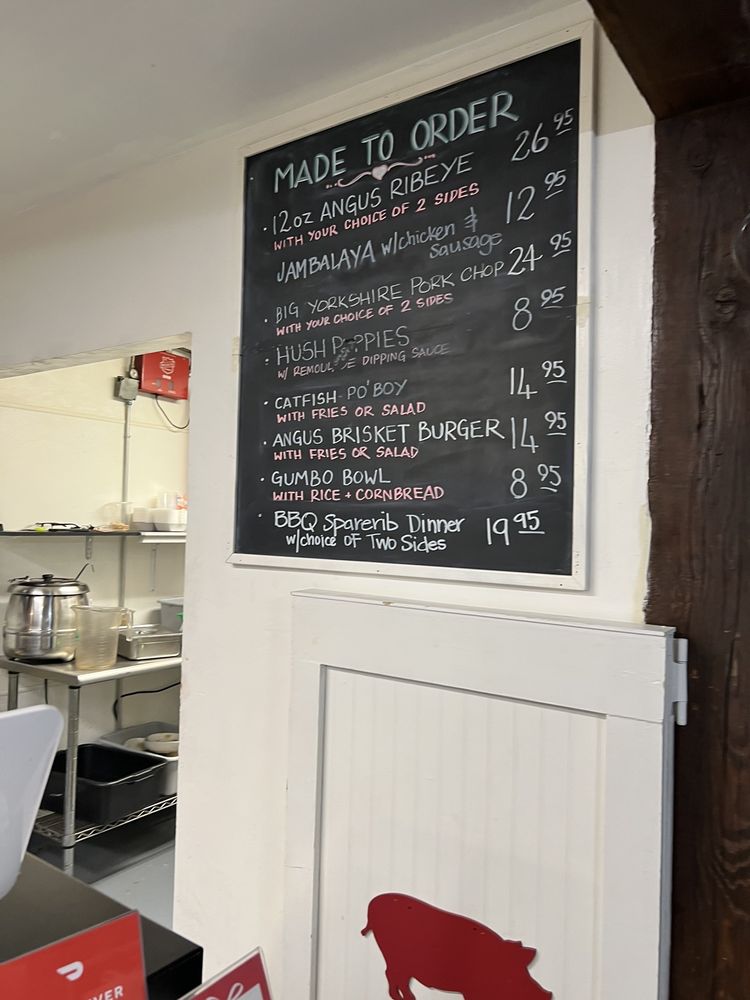 MADE TO ORDER
· 12oz ANGUS RIBEYE 26 95
WITH YOUR CHOICE OF 2 SIDES
JAMBALAYA w/chicken & 12 95
Sausage
· BIG YORKSHIRE PORK CHOP 24 95
WITH YOUR CHOICE OF 2 SIDES
· HUSH P PPIES 8 95
W/ REMOUL DE DIPPING SAUCE
· CATFISH PO'BOY 14 95
WITH FRIES OR SALAD
· ANGUS BRISKET BURGER 14 95
WITH FRIES OR SALAD
· GUMBO BOWL 8 95
WITH RICE + CORNBREAD
· BBQ Sparerib Dinner 19 95
w/choice OF Two Sides